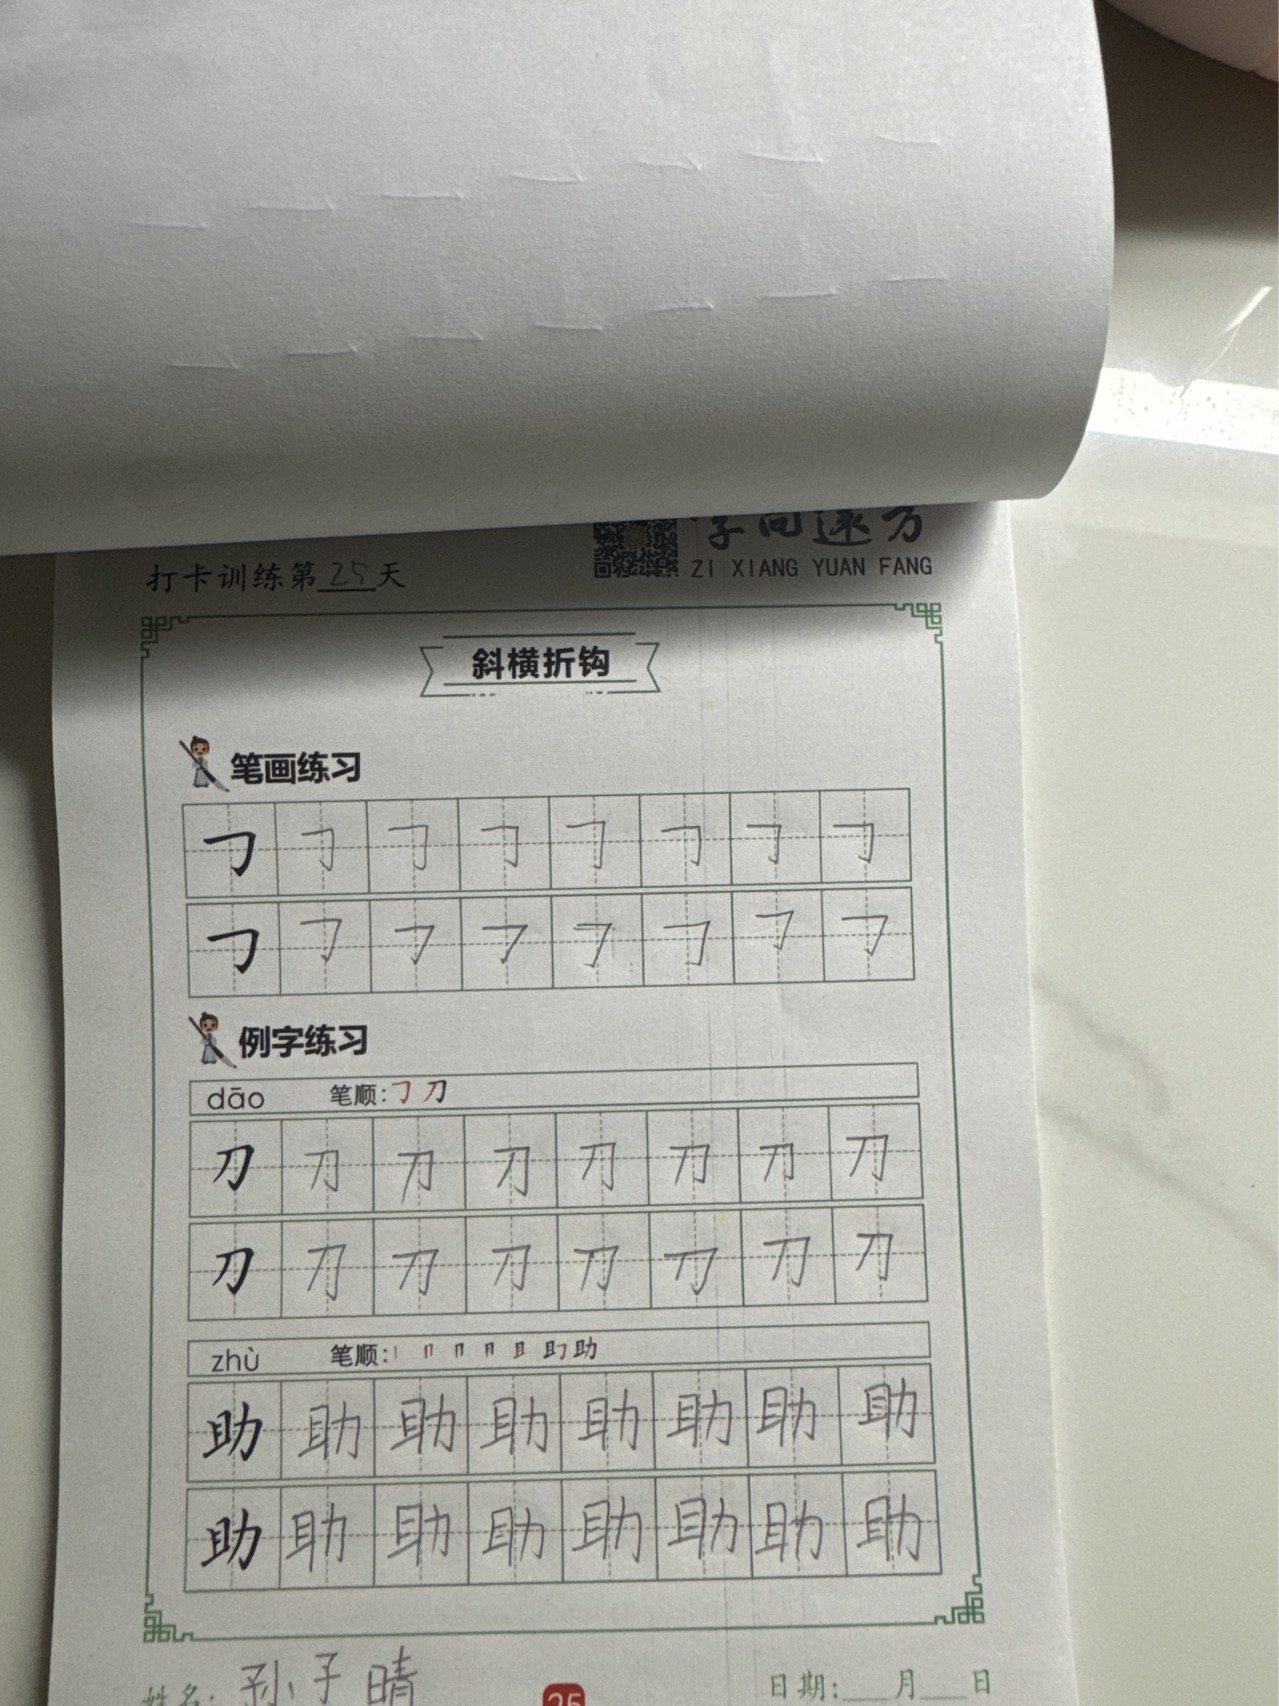 字向远方
打卡训练第25天
ZI XIANG YUAN FANG
斜横折钩
笔画练习
㇆ ㇆ ㇆ ㇆ ㇆ ㇆ ㇆ ㇆
㇆ ㇆ ㇆ ㇆ ㇆ ㇆ ㇆ ㇆
例字练习
dāo 笔顺:㇆刀
刀 刀 刀 刀 刀 刀 刀 刀
刀 刀 刀 刀 刀 刀 刀 刀
zhù 笔顺:丨 冂 冂 月 且 助 助
助 助 助 助 助 助 助 助
助 助 助 助 助 助 助 助
姓名:孙子晴
25
日期:___月___日